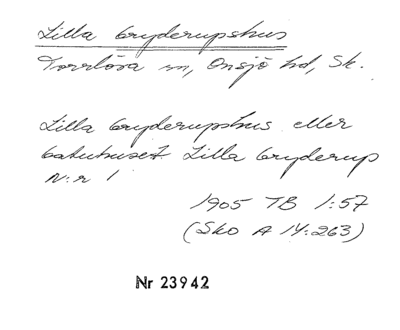 Lilla Gryderupshus
Torrlösa sn, Onsjö hd, Sk.
Lilla Gryderupshus eller
gatuhuset Lilla Gryderup
N:r 1
1905 TB 1:57
(Sko A 14:263)
Nr 23942